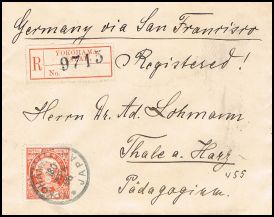 Germany via San Francisco
Registered!
YOKOHAMA
R No. 9715
Herrn Dr. Ad. Lohmann
Thale a. Harz
455
Pädagogium.
JAPAN